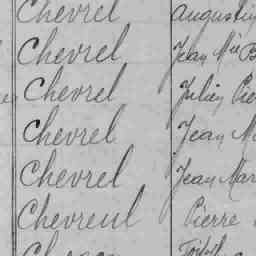 Chevrel Augustin
Chevrel Jean Mie B
Chevrel Julien Pie
Chevrel Jean M
Chevrel Jean Mar
Chevreul Pierre